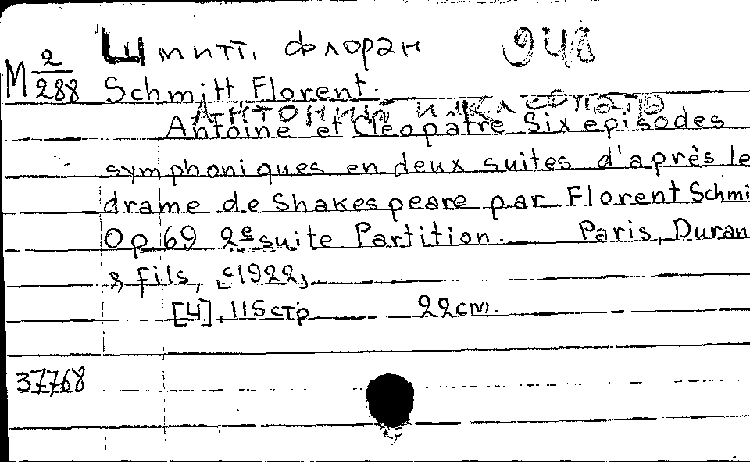 Шмитт, Флоран 948
M 2/288 Schmitt Florent.
Антоний и Клеопатра
Antoine et Cléopâtre Six episodes
symphoniques en deux suites d'après le
drame de Shakespeare par Florent Schmi
Op 69 2e suite Partition. Paris, Duran
& fils, c1922,
[4], 115 стр 22 см.
37768